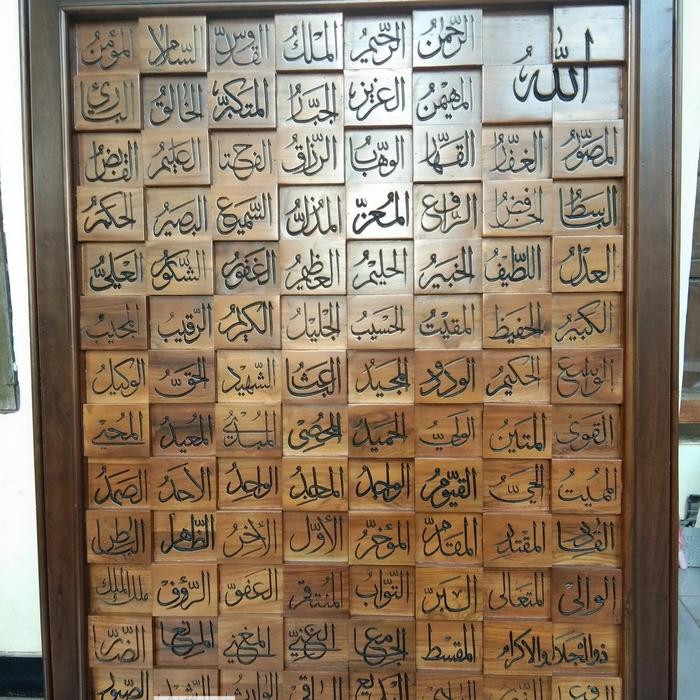 الله الرحمن الرحيم الملك القدوس السلام المؤمن
المهيمن العزيز الجبار المتكبر الخالق البارئ
المصور الغفار القهار الوهاب الرزاق الفتاح العليم القابض
الباسط الخافض الرافع المعز المذل السميع البصير الحكم
العدل اللطيف الخبير الحليم العظيم الغفور الشكور العلي
الكبير الحفيظ المقيت الحسيب الجليل الكريم الرقيب المجيب
الواسع الحكيم الودود المجيد الباعث الشهيد الحق الوكيل
القوي المتين الولي الحميد المحصي المبدئ المعيد المحيي
المميت الحي القيوم الواجد الماجد الواحد الأحد الصمد
القادر المقتدر المقدم المؤخر الأول الآخر الظاهر الباطن
الوالي المتعالي البر التواب المنتقم العفو الرؤف مالك الملك
ذوالجلال والاكرام المقسط الجامع الغني المغني المانع الضار